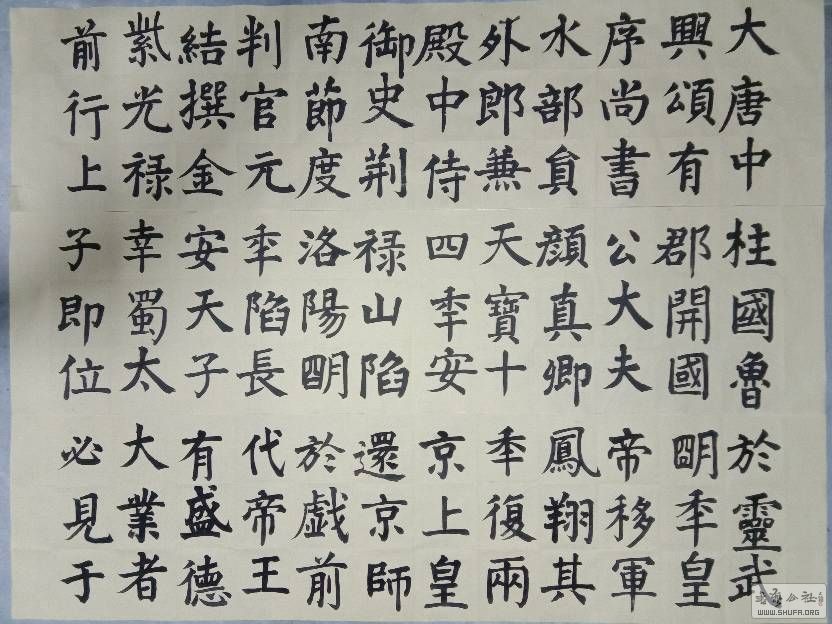 大唐中
興頌有
序尚書
水部貟
外郎兼
殿中侍
御史荆
南節度
判官元
結撰金
紫光禄
前行上
柱國魯
郡開國
公大夫
顔真卿
天寶十
四秊安
禄山陷
洛陽眀
秊陷長
安天子
幸蜀太
子即位
於靈武
眀秊皇
帝移軍
鳳翔其
秊復兩
京上皇
還京師
於戲前
代帝王
有盛德
大業者
必見于
WWW.SHUFA.ORG